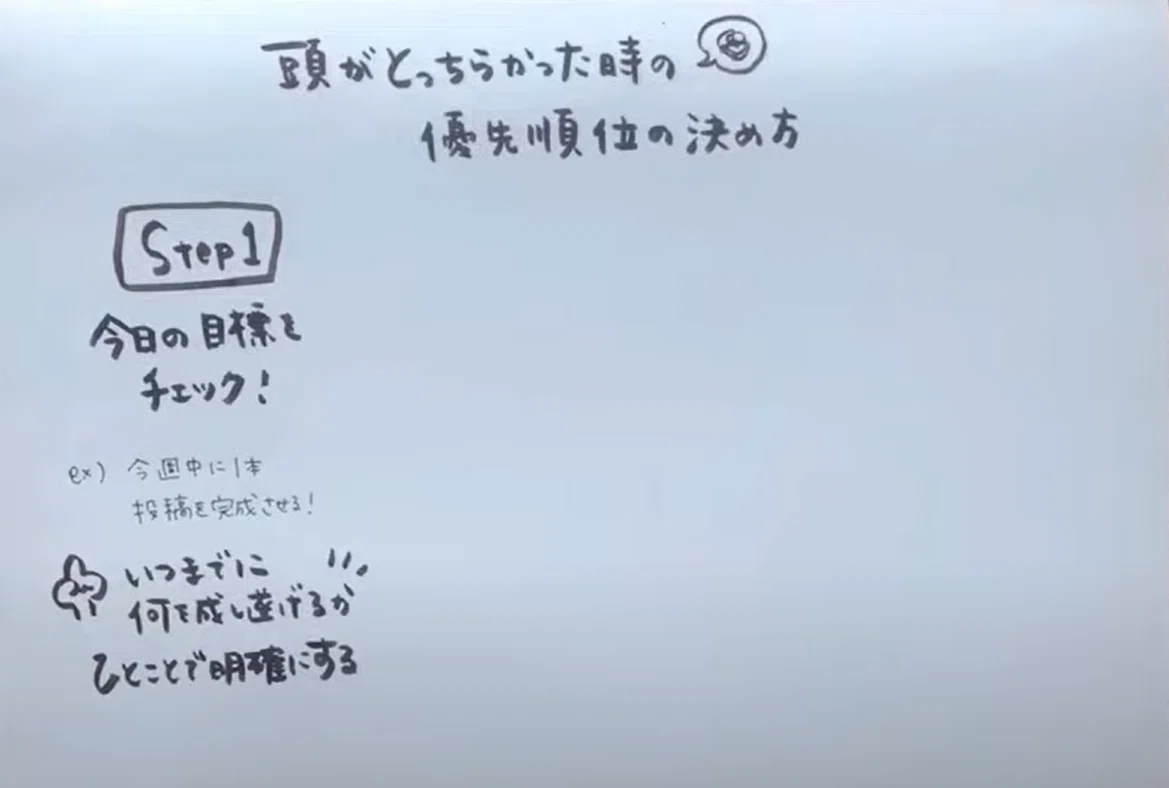 頭がとっちらかった時の
優先順位の決め方
Step1
今日の目標を
チェック!
ex) 今週中に1本
投稿を完成させる!
いつまでに
何を成し遂げるか
ひとことで明確にする